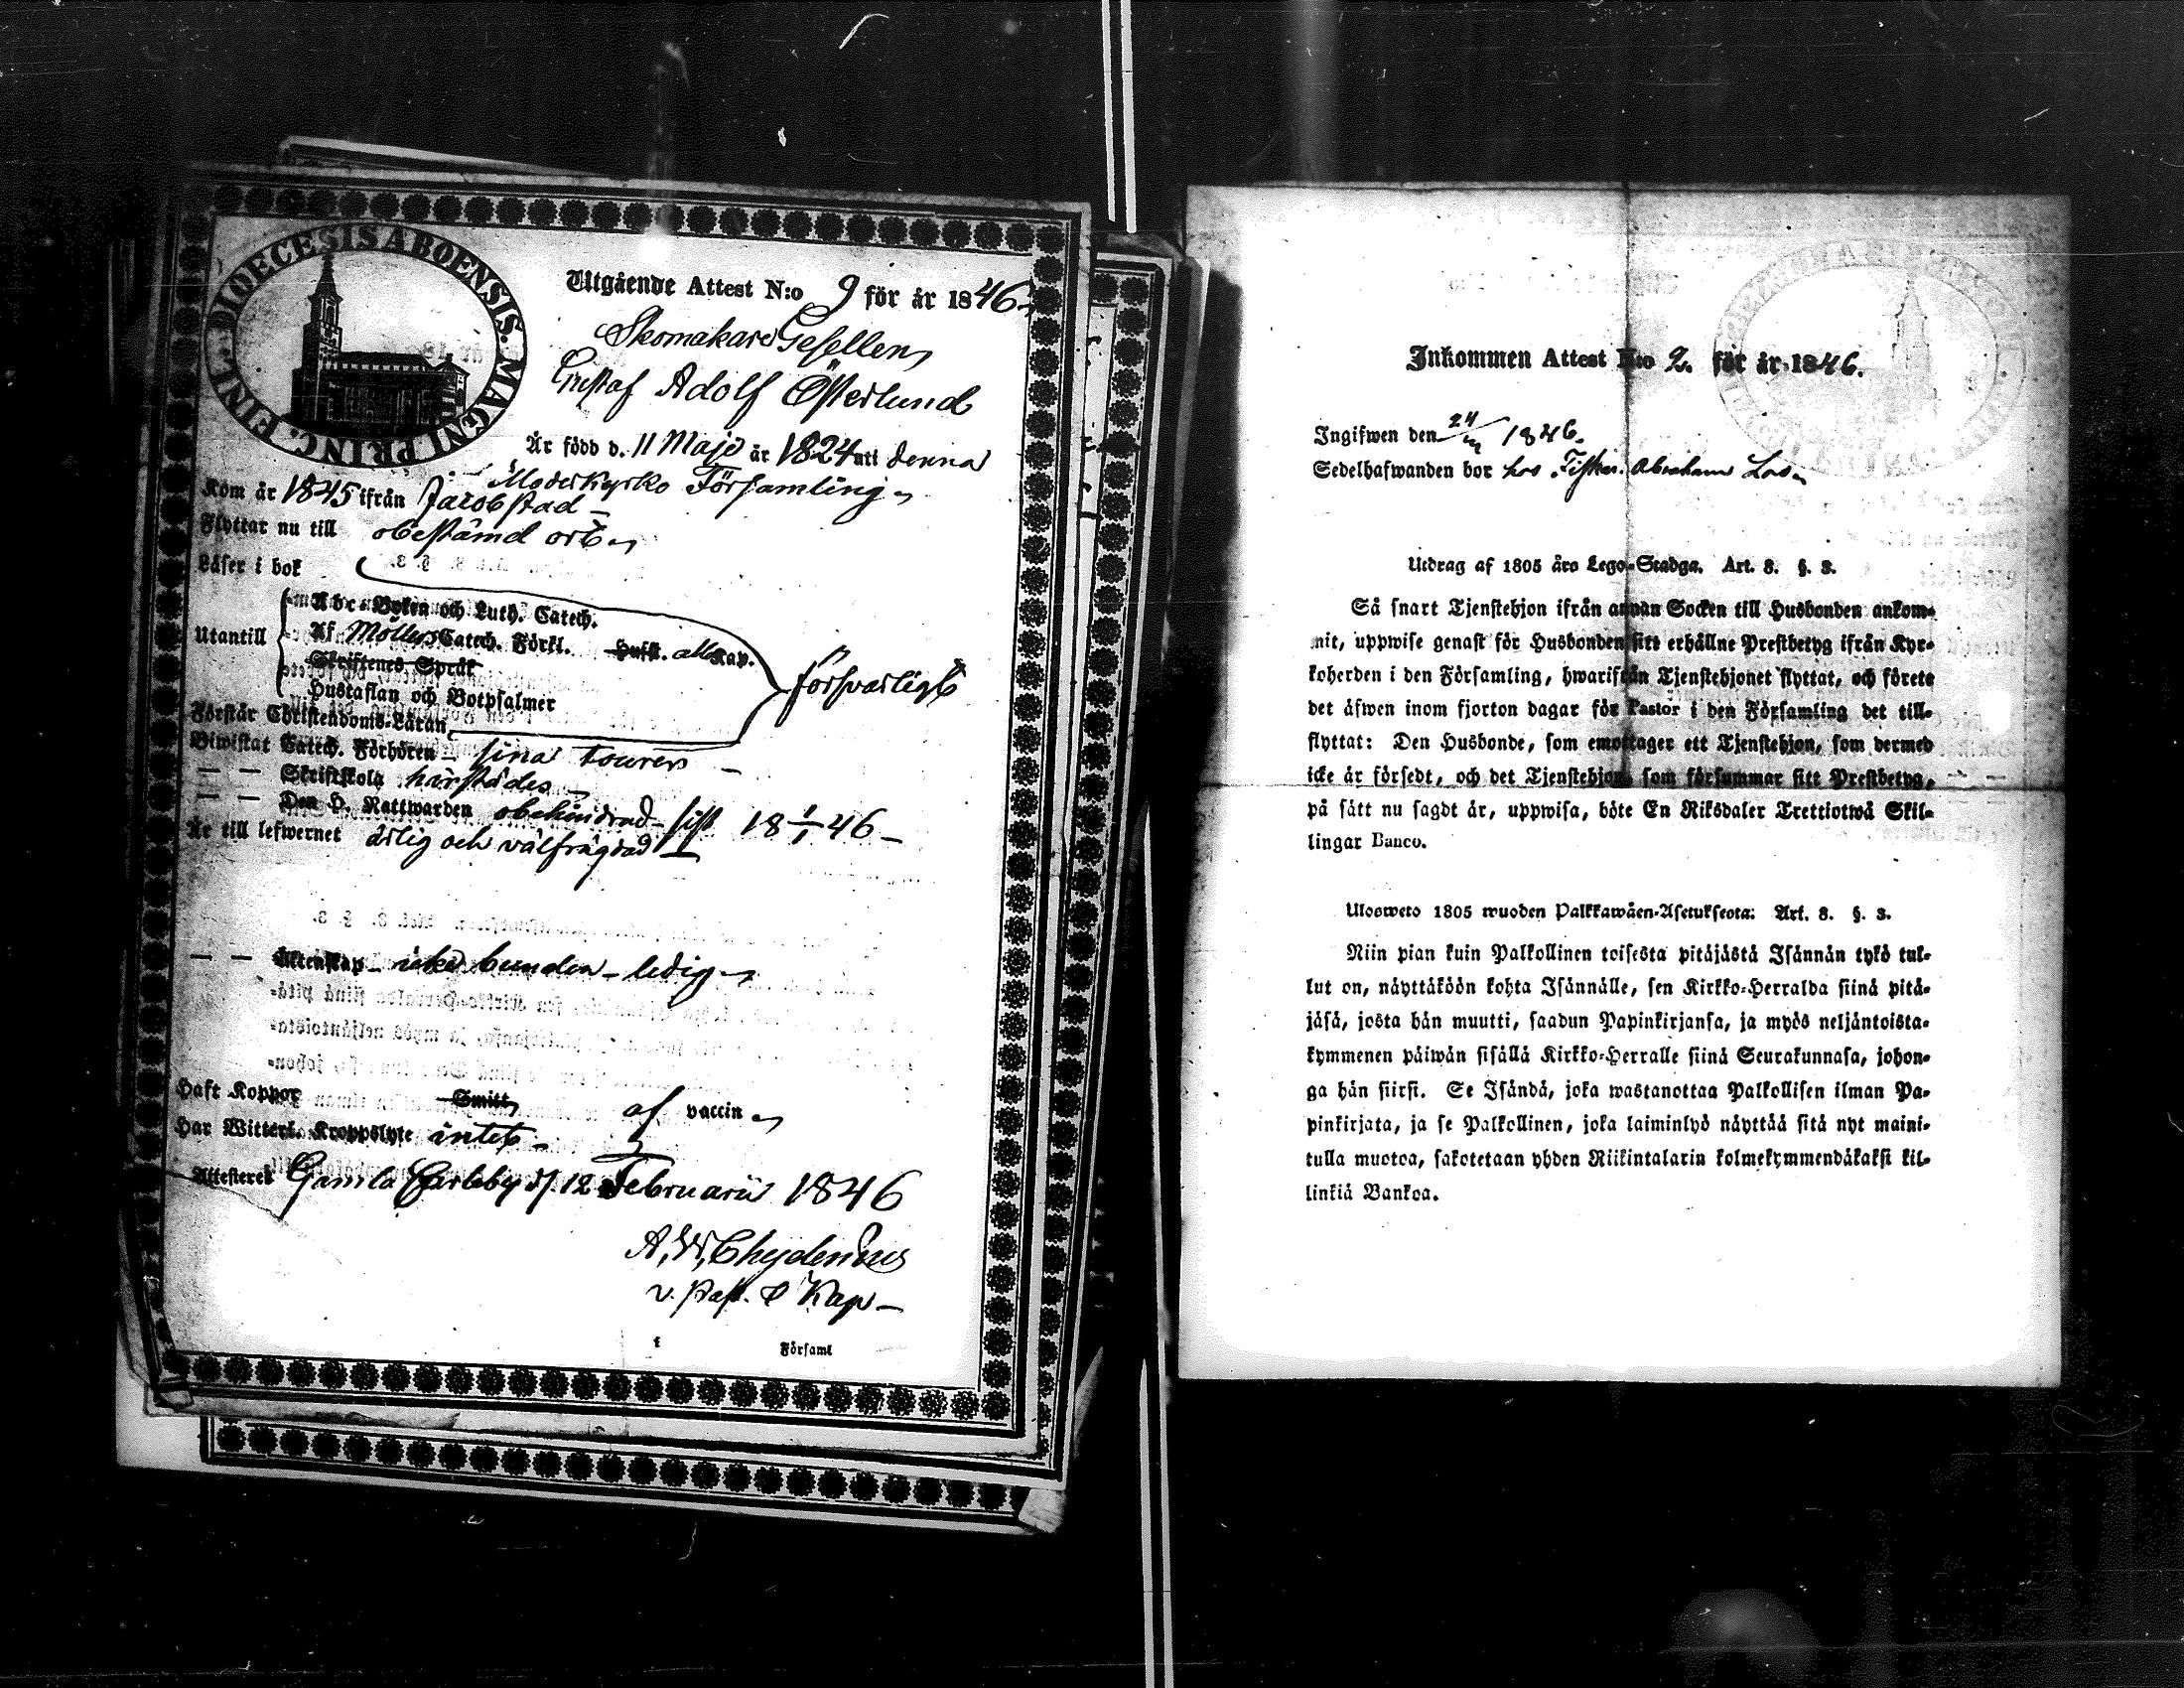 DIOECESIS ABOENSIS. MAGNI PRINC. FINL.
Utgående Attest N:o 9 för år 1846.
Skomakare Gesellen
Gustaf Adolf Österlund
Är född d. 11 Maji år 1824 uti denna
Moderkyrko Församling
Kom år 1845 ifrån Jacobstad
Flyttar nu till obestämd ort
Läser i bok
Utantill
Abc-Boken och Luth. Catech.
Af Möllers Catech. Förkl. Hufst. alla Kap.
Skriftenes Språk
Hustaflan och Botpsalmer
försvarligt
Förstår Christendoms-Läran
Biwistat Catech. Förhören sina tourer
— — Skriftskola härstädes
— — Den H. Nattwarden obehindrad sist 18 1/1 46
Är till lefwernet ärlig och välfrägdad
— — Äktenskap icke bunden - ledig
Haft Koppor Smitt af vaccin
Har Witterl. Kroppslyte intet
Attesteras Gamla Carleby d. 12 Februarii 1846
A. W. Chydenius
v. past. & Kap
i Församl
Inkommen Attest N:o 2. för år 1846.
Ingifwen den 24/2 1846.
Sedelhafwanden bor hos Fiskar. Abraham
Utdrag af 1805 års Lego-Stadga. Art. 8. §. 3.
Så snart Tjenstehjon ifrån annan Socken till Husbonden ankom-
mit, uppwise genast för Husbonden sitt erhållne Prestbetyg ifrån Kyr-
koherden i den Församling, hwarifrån Tjenstehjonet flyttat, och förete
det äfwen inom fjorton dagar för Pastor i den Församling det till-
flyttat: Den Husbonde, som emottager ett Tjenstehjon, som dermed
icke är försedt, och det Tjenstehjon, som försummar sitt Prestbetyg,
på sätt nu sagdt är, uppwisa, böte En Riksdaler Trettiotwå Skil-
lingar Banco.
Ulosweto 1805 wuoden Palkkawäen-Asetuksesta: Art. 8. §. 3.
Niin pian kuin Palkollinen toisesta pitäjästä Isännän tykö tul-
lut on, näyttäköön kohta Isännälle, sen Kirkko-Herralda siinä pitä-
jäsä, josta hän muutti, saadun Papinkirjansa, ja myös neljäntoista-
kymmenen päiwän sisällä Kirkko-Herralle siinä Seurakunnasa, johon-
ga hän siirsi. Se Isändä, joka wastanottaa Palkollisen ilman Pa-
pinkirjata, ja se Palkollinen, joka laiminlyö näyttää sitä nyt maini-
tulla muotoa, sakotetaan yhden Riikintalarin kolmekymmendäkaksi kil-
linkiä Bankoa.